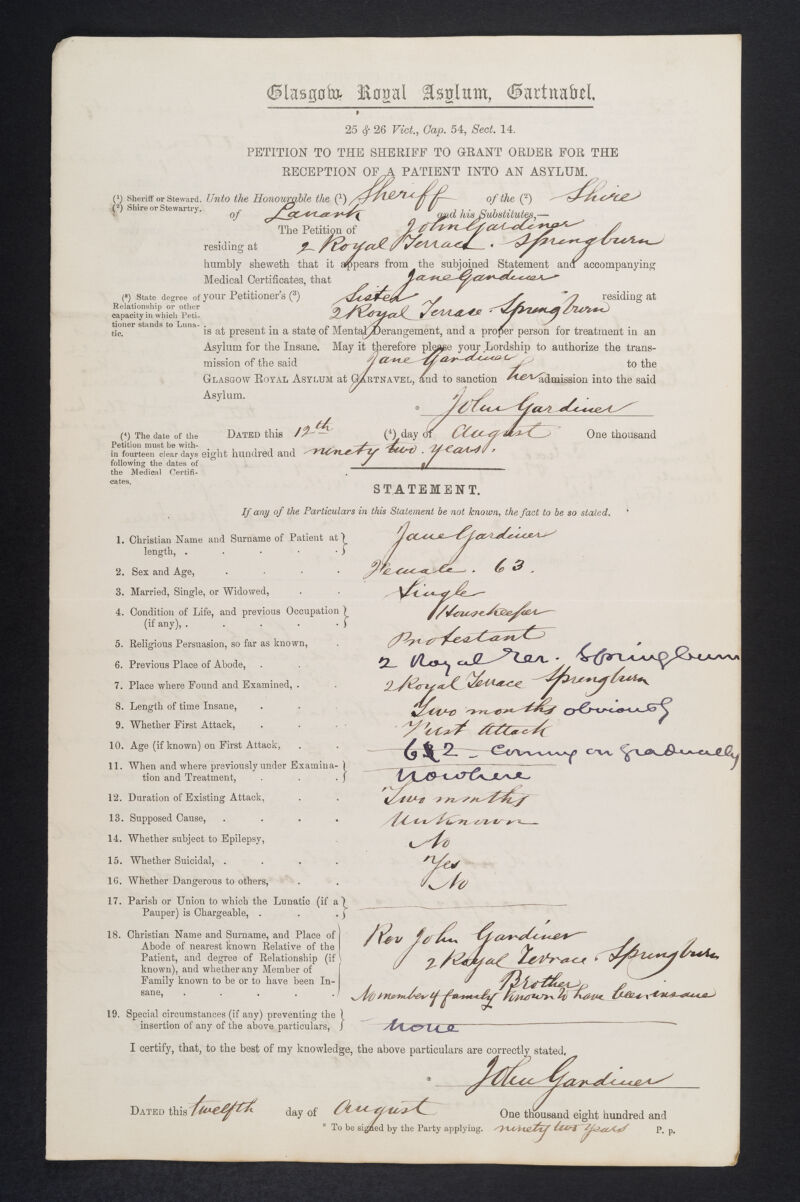 Glasgow Royal Asylum, Gartnavel.
25 & 26 Vict., Cap. 54, Sect. 14.
PETITION TO THE SHERIFF TO GRANT ORDER FOR THE
RECEPTION OF A PATIENT INTO AN ASYLUM.
(¹) Sheriff or Steward. Unto the Honourable the (¹) Sheriff of the (²) Shire
(²) Shire or Stewartry. of Lanark and his Substitutes,—
The Petition of John Gardiner
residing at 2 Royal Terrace. Springburn
humbly sheweth that it appears from the subjoined Statement and accompanying
Medical Certificates, that Jane Gardiner
(³) State degree of Relationship or other capacity in which Petitioner stands to Lunatic.
your Petitioner's (³) Sister residing at
2 Royal Terrace. Springburn
is at present in a state of Mental Derangement, and a proper person for treatment in an
Asylum for the Insane. May it therefore please your Lordship to authorize the trans-
mission of the said Jane Gardiner to the
GLASGOW ROYAL ASYLUM at GARTNAVEL, and to sanction her admission into the said
Asylum.
* John Gardiner
(⁴) The date of the Petition must be within fourteen clear days following the dates of the Medical Certificates.
DATED this 12th (⁴) day of August One thousand
eight hundred and ninety two. years.
STATEMENT.
If any of the Particulars in this Statement be not known, the fact to be so stated.
1. Christian Name and Surname of Patient at length, . Jane Gardiner
2. Sex and Age, Female. 63.
3. Married, Single, or Widowed, Single
4. Condition of Life, and previous Occupation (if any), . Housekeeper
5. Religious Persuasion, so far as known, Protestant
6. Previous Place of Abode, 2 Royal Ter. Springburn
7. Place where Found and Examined, . 2 Royal Terrace Springburn
8. Length of time Insane, Two months obviously
9. Whether First Attack, First Attack
10. Age (if known) on First Attack, 62 - Coming on gradually
11. When and where previously under Examina-
tion and Treatment, Nowhere
12. Duration of Existing Attack, Two months
13. Supposed Cause, Unknown
14. Whether subject to Epilepsy, No
15. Whether Suicidal, . Yes
16. Whether Dangerous to others, No
17. Parish or Union to which the Lunatic (if a
Pauper) is Chargeable, .
18. Christian Name and Surname, and Place of
Abode of nearest known Relative of the
Patient, and degree of Relationship (if
known), and whether any Member of
Family known to be or to have been In-
sane,
Rev John Gardiner
2 Royal Terrace. Springburn
Brother
No member of family known to have been insane
19. Special circumstances (if any) preventing the
insertion of any of the above particulars, None
I certify, that, to the best of my knowledge, the above particulars are correctly stated.
* John Gardiner
DATED this twelfth day of August One thousand eight hundred and
* To be signed by the Party applying. ninety two years P. p.